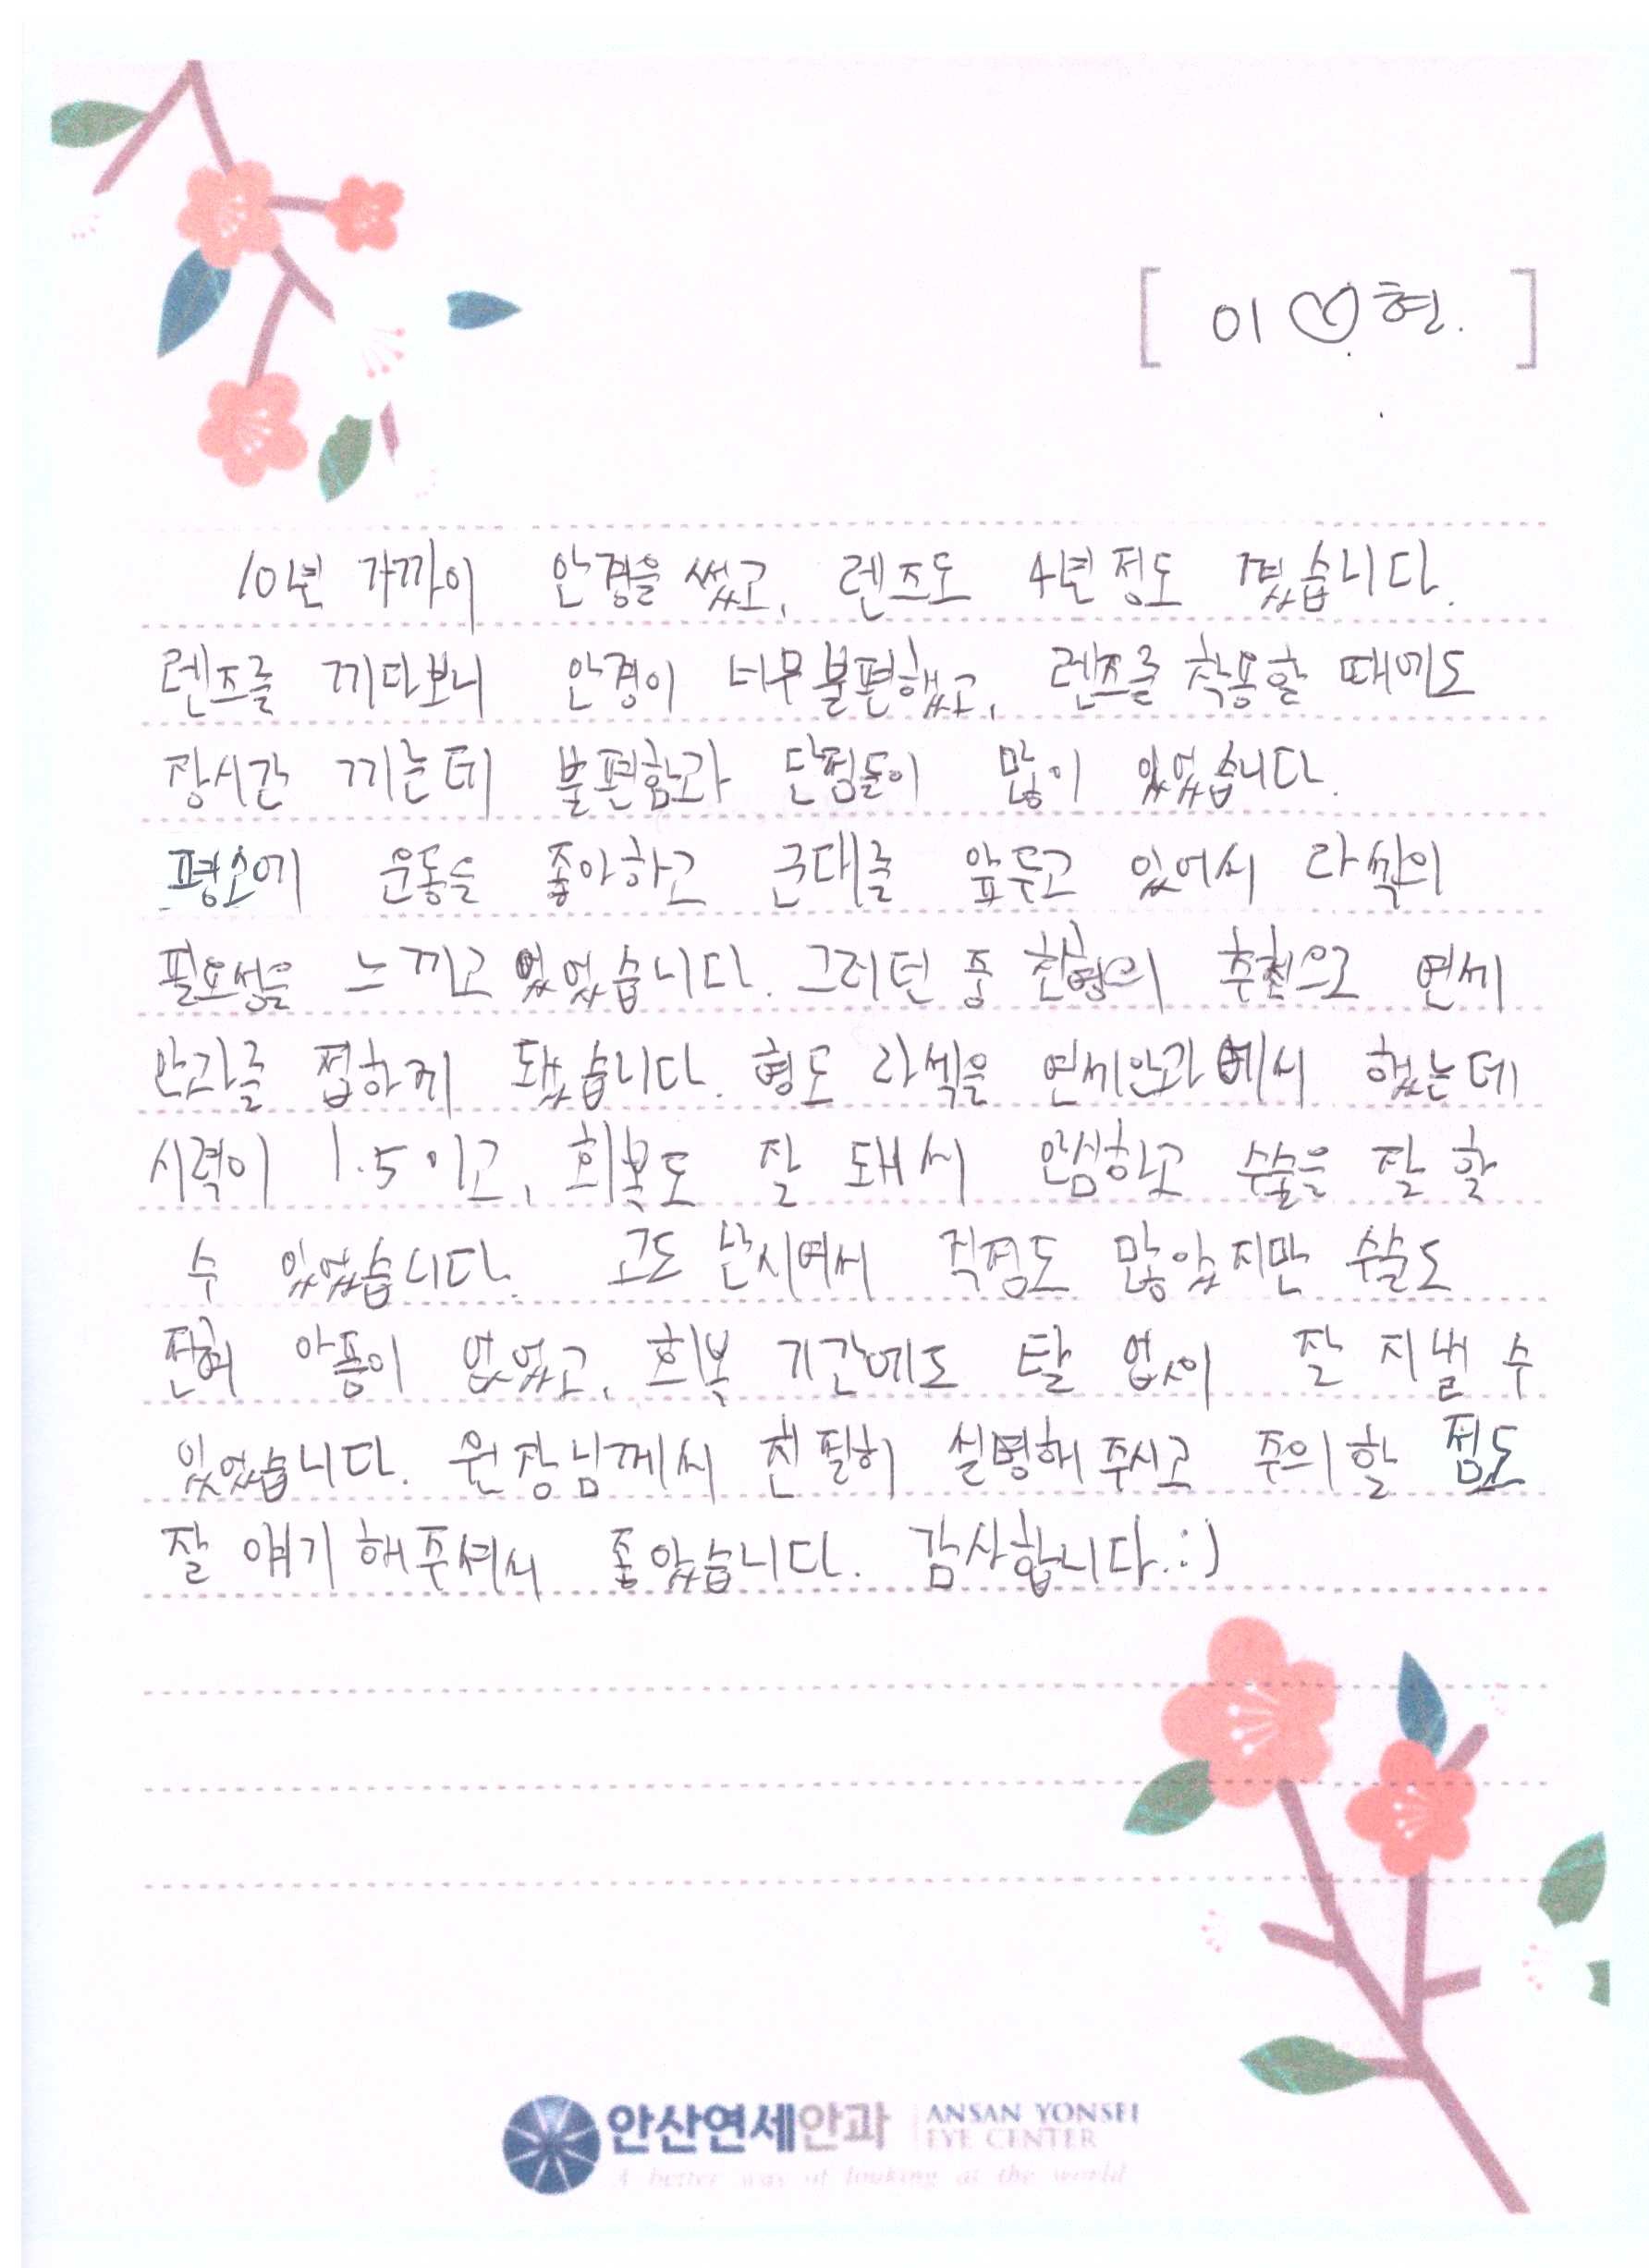 [ 이♡현. ]
10년 가까이 안경을 썼고, 렌즈도 4년정도 꼈습니다.
렌즈를 끼다보니 안경이 너무불편했고, 렌즈를 착용할 때에도
장시간 끼는데 불편함과 단점들이 많이 있었습니다.
평소에 운동을 좋아하고 군대를 앞두고 있어서 라섹의
필요성을 느끼고 있었습니다. 그러던 중 친형의 추천으로 연세
안과를 접하게 됐습니다. 형도 라섹을 연세안과에서 했는데
시력이 1.5이고, 회복도 잘 돼서 안심하고 수술을 잘 할
수 있었습니다. 고도 난시여서 걱정도 많았지만 수술도
전혀 아픔이 없었고, 회복 기간에도 탈 없이 잘 지낼 수
있었습니다. 원장님께서 친절히 설명해주시고 주의할 점도
잘 얘기해주셔서 좋았습니다. 감사합니다.:)
안산연세안과 ANSAN YONSEI
EYE CENTER
A better way of looking at the world